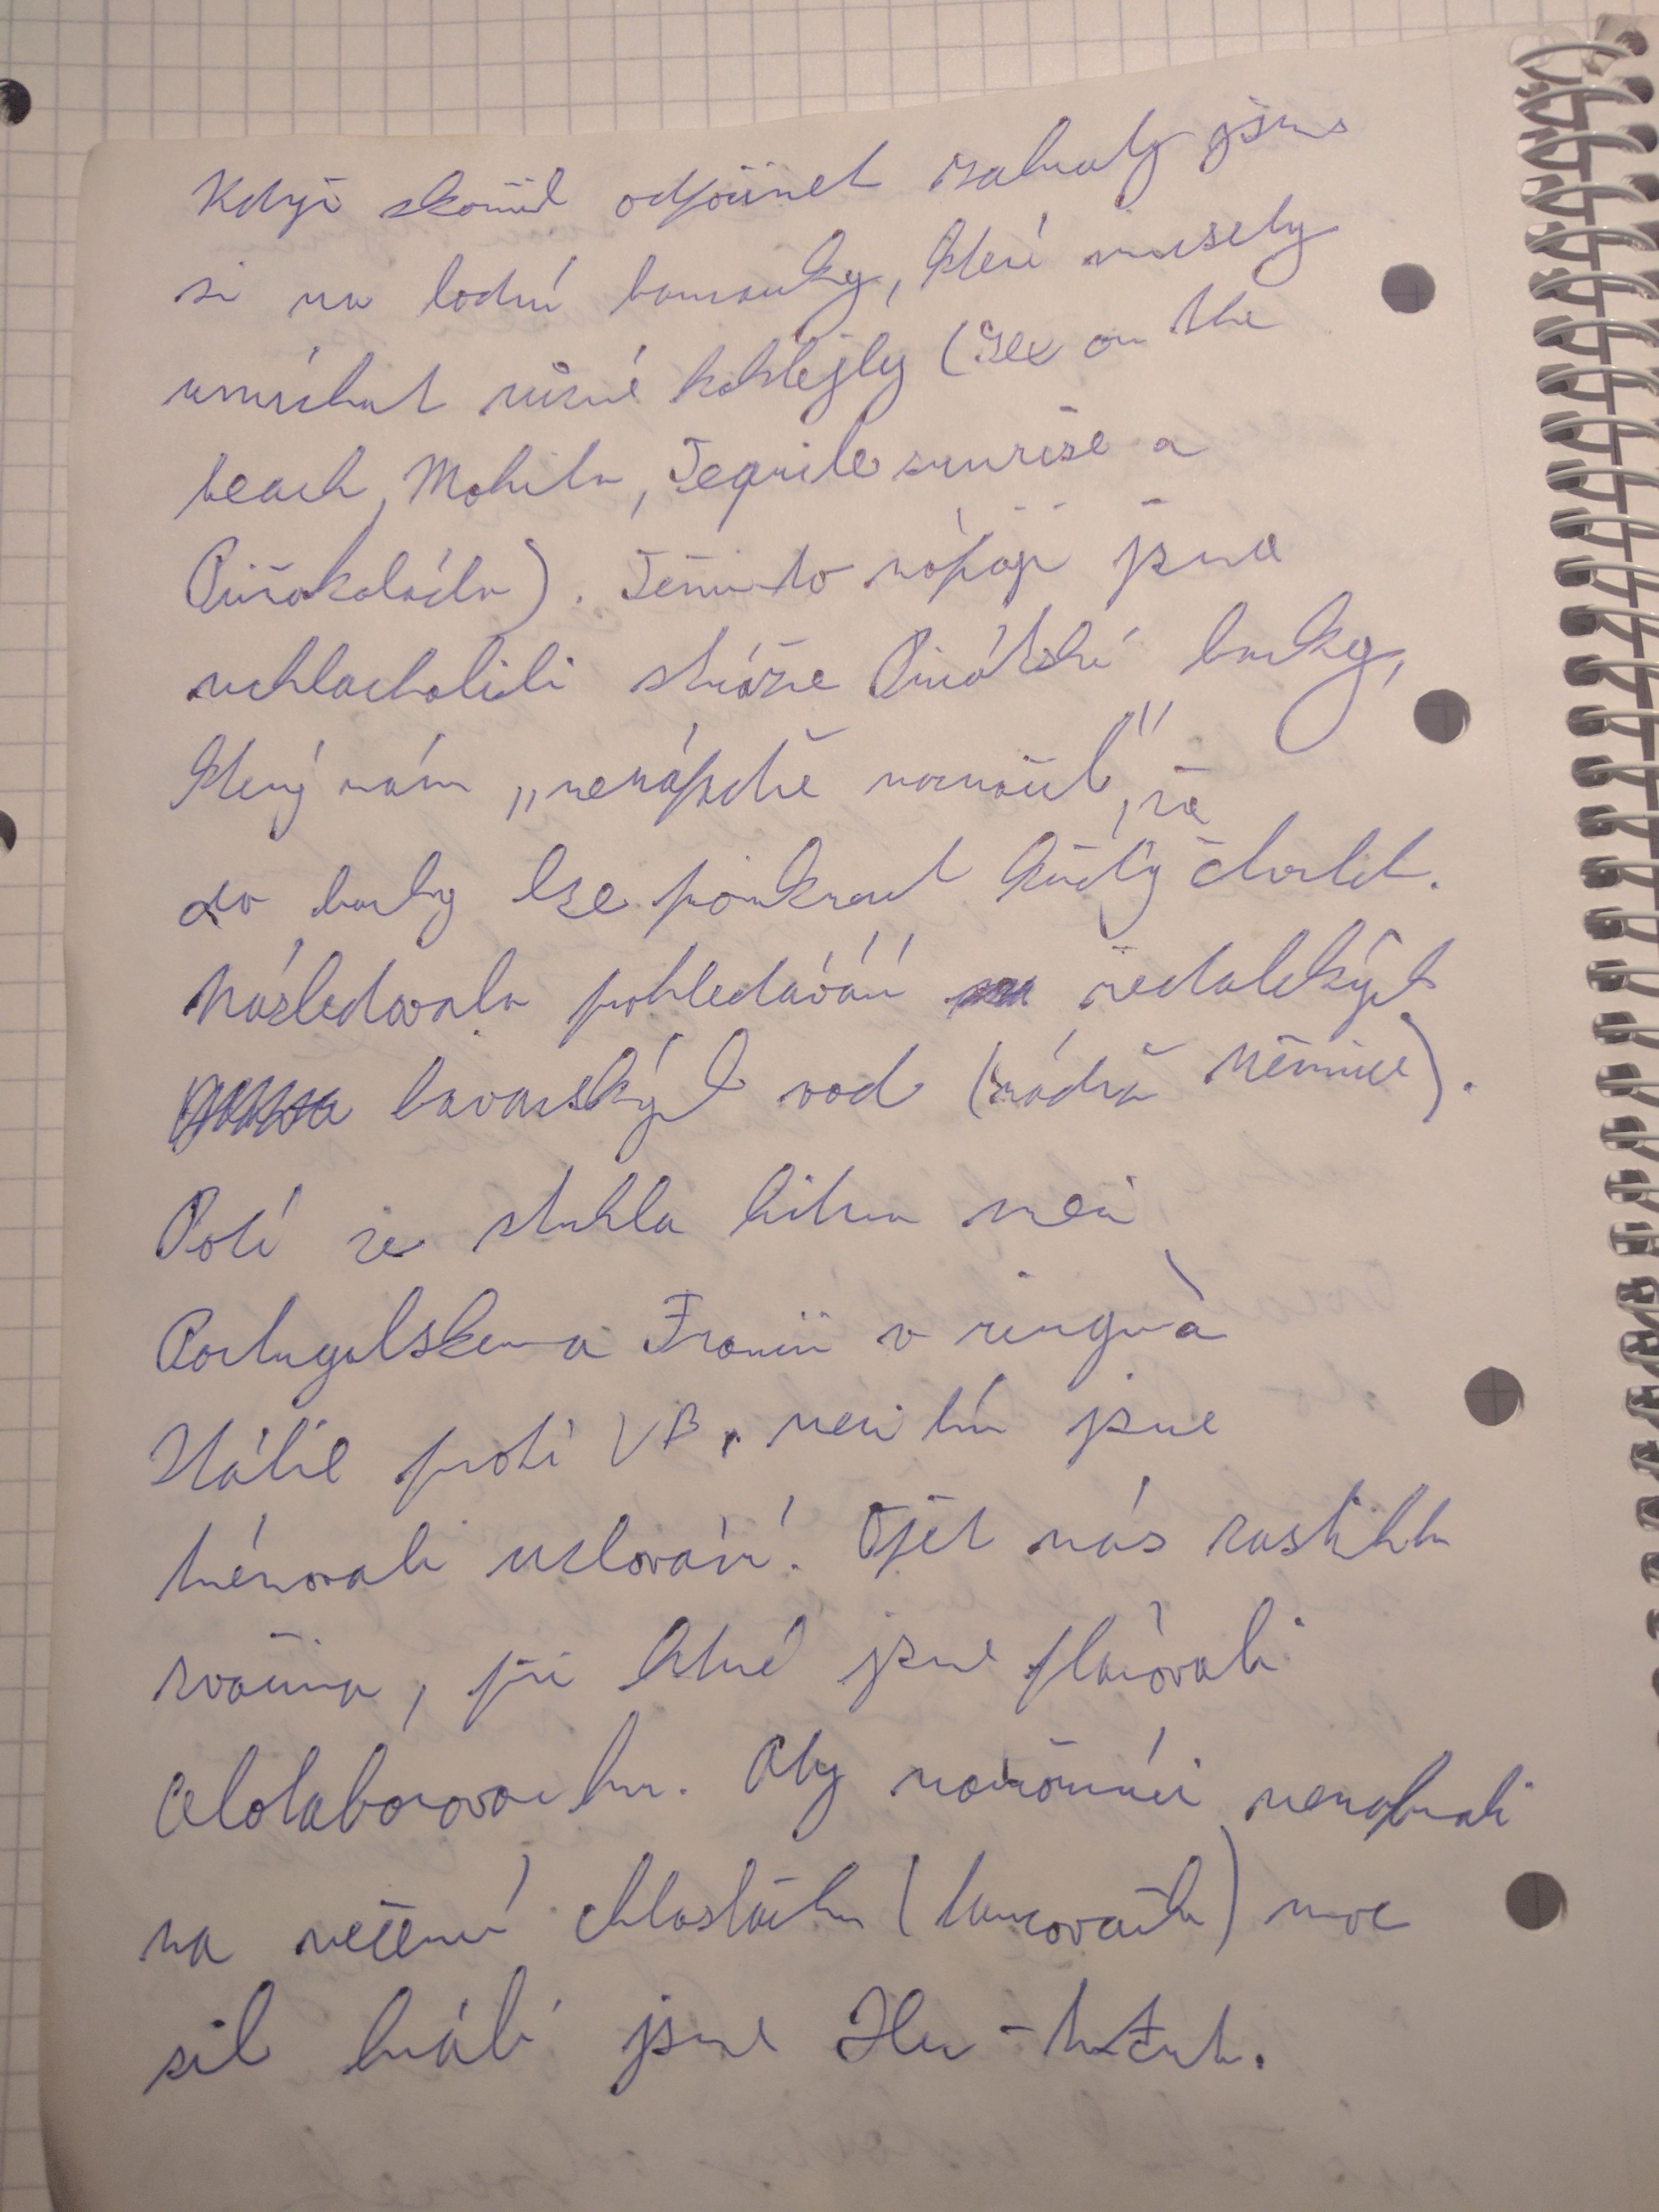 Když skončil odpočinek zahrály jsme
si na lodní barmanky, které musely
umíchat různé koktejly (Sex on the
beach, Mohito, Tequile sunrise a
Piňakoláda). Těmito nápoji jsme
uchlácholili stráže Pirátské barky,
který nám „nenápadně naznačil", že
do barky lze proniknout každý čtvrtek.
Následovala prohledávání nedalekých
bavorských vod (nádrž Němnice).
Poté se strhla bitva mezi
Portugalskem a Francií v ringu a
Itálie proti VB, mezi tím jsme
trénovali uzlování. Opět nás zastihla
svačina, při které jsme plánovali
celotáborovou hru. Aby námořníci nenabrali
na večerní chlastačku (tancovačku) moc
sil hráli jsme Hu-tu-tu.